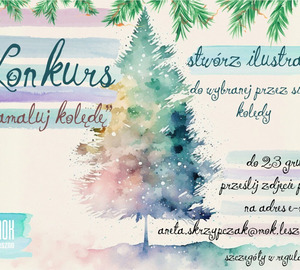 Konkurs
amaluj kolędę"
stwórz ilustra
do wybranej przez s
kolędy
do 23 gru
prześlij zdjęcie p
na adres e-
aneta.skrzypczak@mok.lesz
szczegóły w regula
MOK